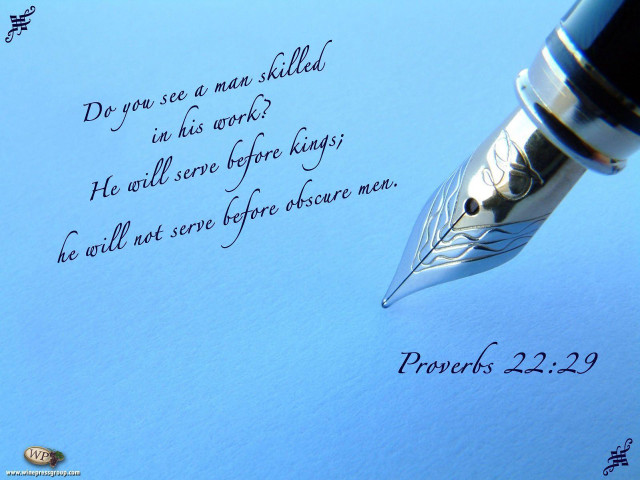 Do you see a man skilled
in his work?
He will serve before kings;
he will not serve before obscure men.
Proverbs 22:29
WP
www.winepressgroup.com